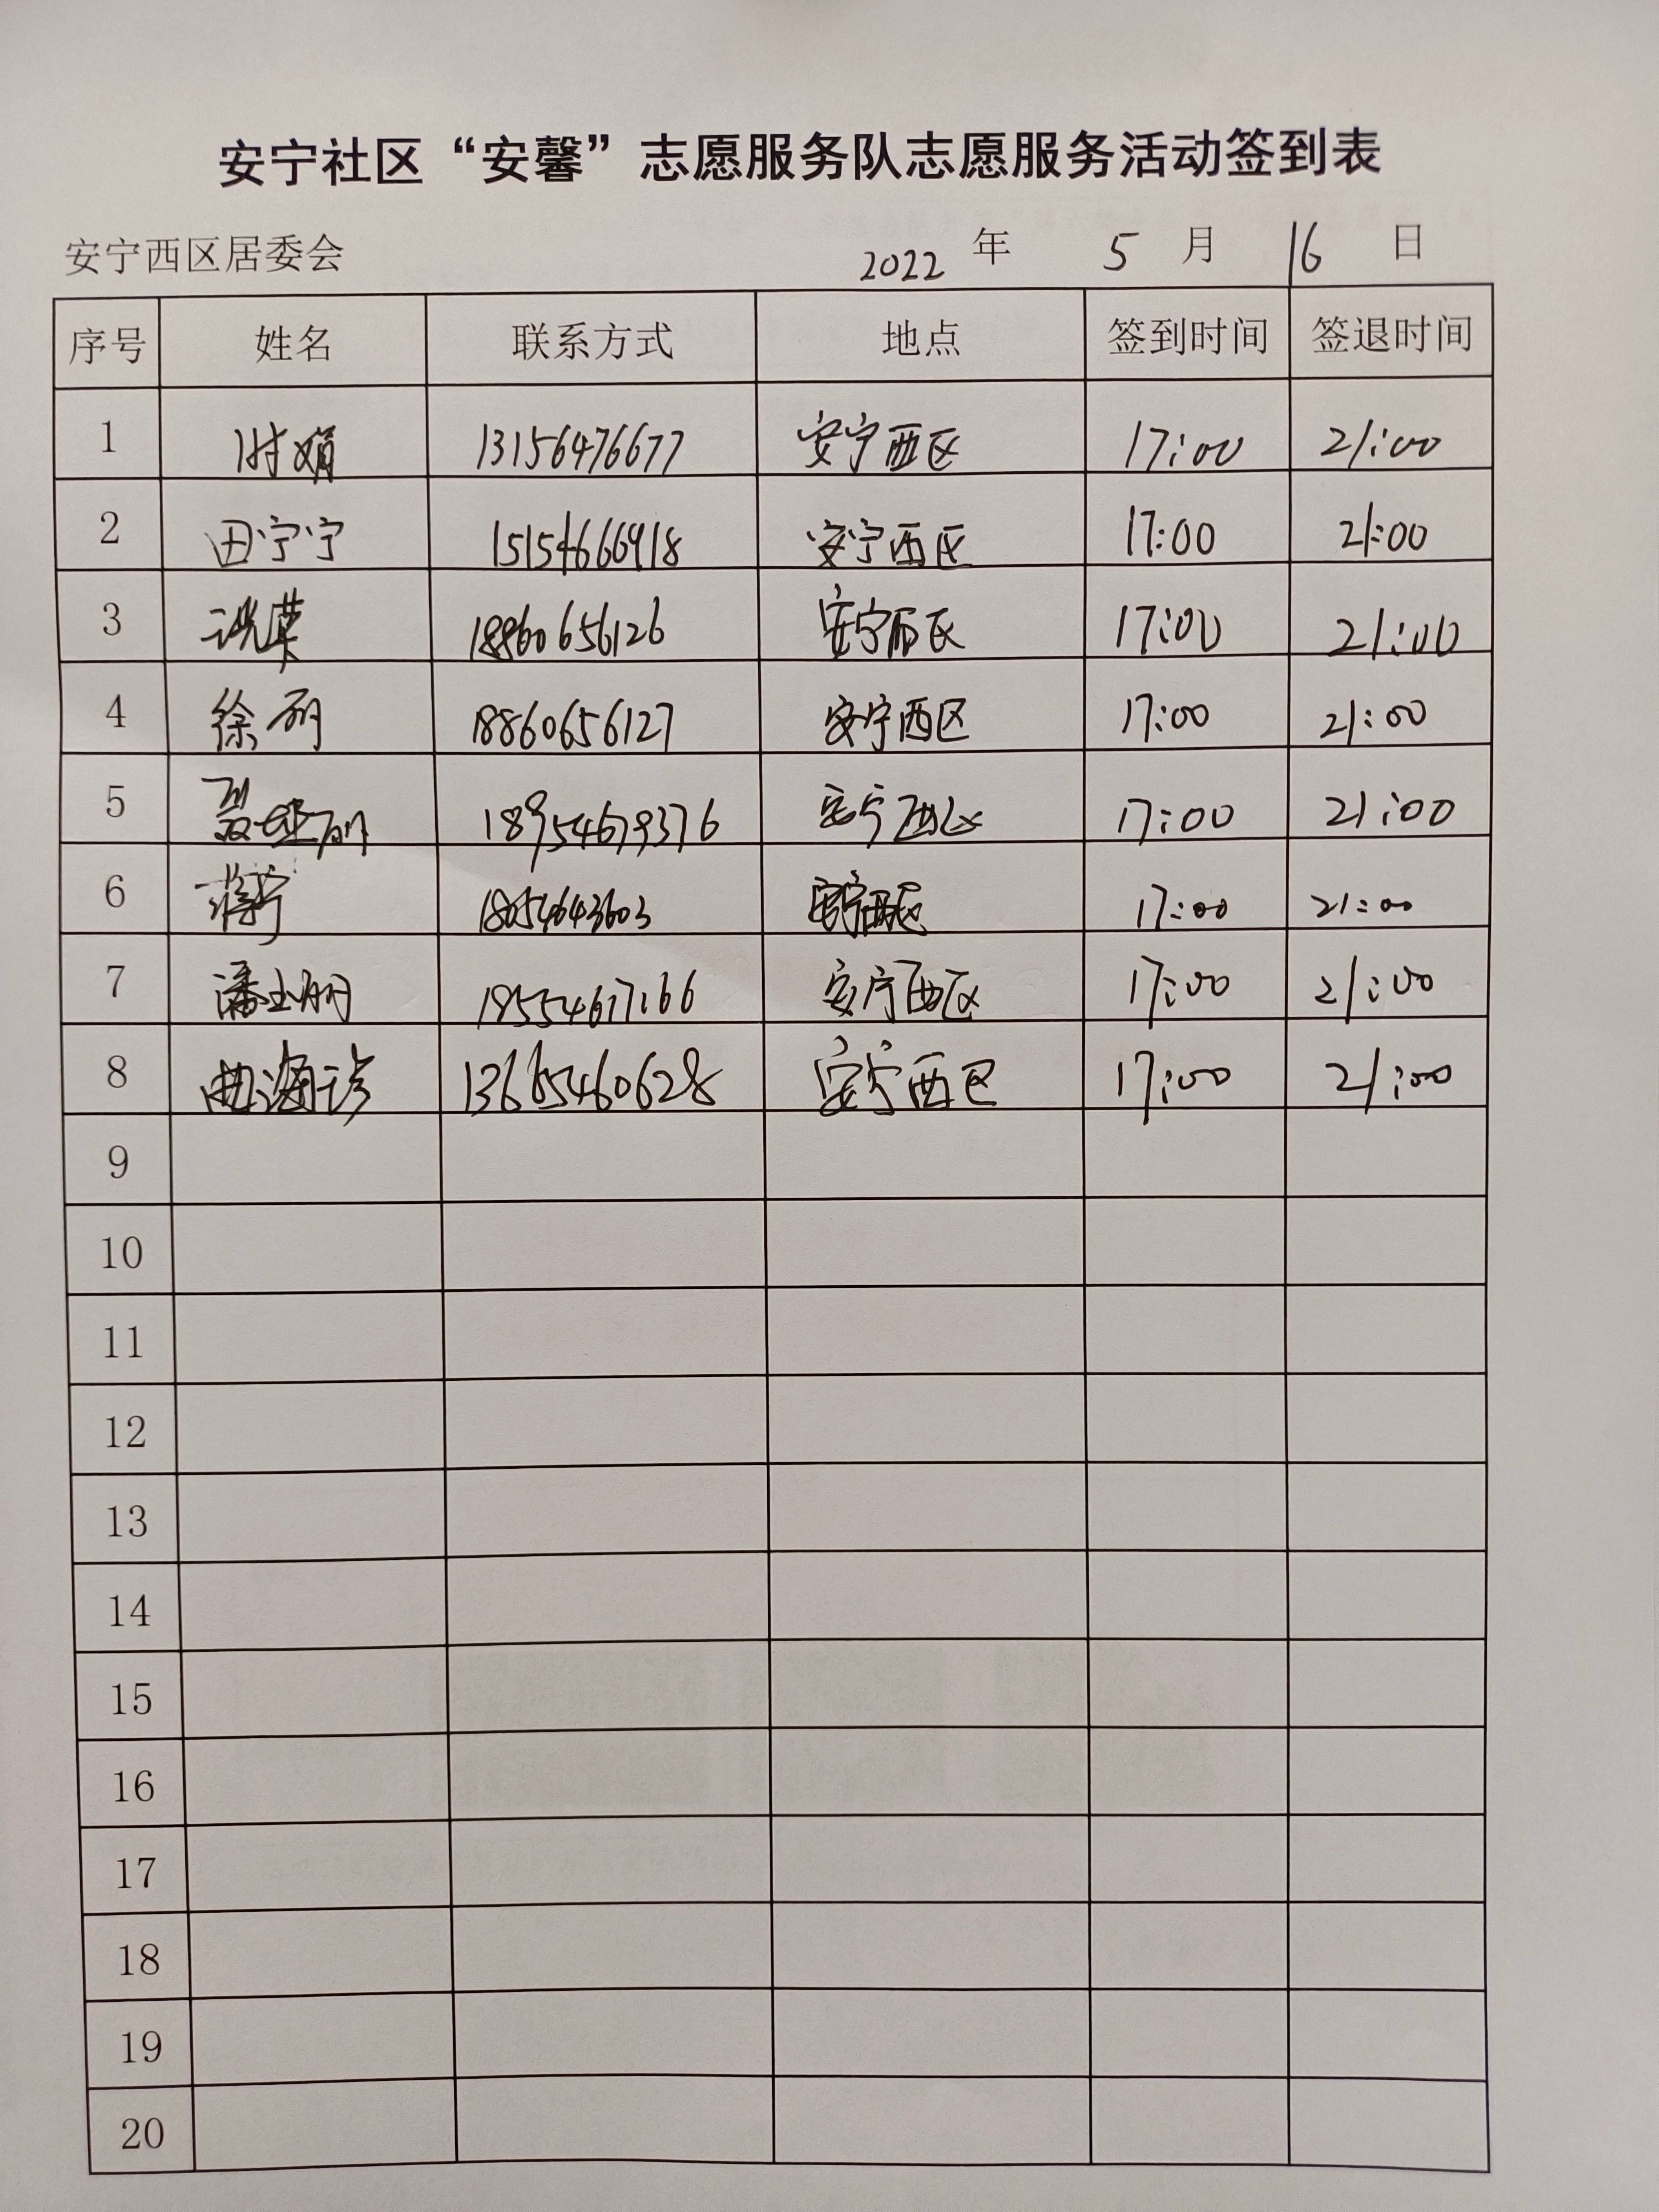 安宁社区“安馨”志愿服务队志愿服务活动签到表
安宁西区居委会 2022 年 5 月 16 日
序号 姓名 联系方式 地点 签到时间 签退时间
1 时娟 13156476677 安宁西区 17:00 21:00
2 田宁宁 15154666918 安宁西区 17:00 21:00
3 18860656126 安宁西区 17:00 21:00
4 徐丽 18860656127 安宁西区 17:00 21:00
5 聂亚丽 18954679376 安宁西区 17:00 21:00
6 18054643603 安宁西区 17:00 21:00
7 潘玉丽 18554617166 安宁西区 17:00 21:00
8 曲海珍 13665460628 安宁西区 17:00 21:00
9
10
11
12
13
14
15
16
17
18
19
20